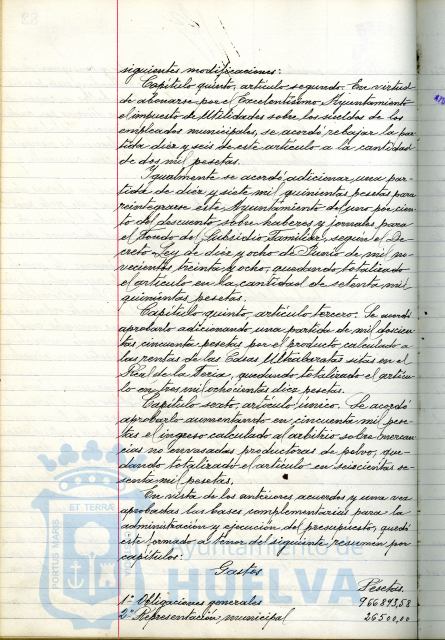 siguientes modificaciones:
Capítulo quinto, artículo segundo. En virtud
de abonarse por el Excelentísimo Ayuntamiento
el impuesto de Utilidades sobre los sueldos de los
empleados municipales, se acordó rebajar la par-
tida diez y seis de este artículo a la cantidad
de dos mil pesetas.
Igualmente se acordó adicionar una par-
tida de diez y siete mil quinientas pesetas para
reintegrarse este Ayuntamiento del uno por cien-
to de descuento sobre haberes y jornales para
el Fondo de "Subsidio Familiar", según el De-
creto-Ley de diez y ocho de Junio de mil no-
vecientos treinta y ocho, quedando totalizado
el artículo en la cantidad de setenta mil
quinientas pesetas.
Capítulo quinto, artículo tercero. Se acordó
aprobarlo adicionando una partida de mil doscien-
tas cincuenta pesetas por el producto calculado a
las rentas de las Casas Ultrabaratas sitas en el
Real de la Feria, quedando totalizado el artícu-
lo en tres mil ochocientas diez pesetas.
Capítulo sexto, artículo único. Se acordó
aprobarlo aumentando en cincuenta mil pese-
tas el ingreso calculado al arbitrio sobre mercan-
cías no envasadas productoras de polvo, que-
dando totalizado el artículo en seiscientas se-
senta mil pesetas.
En vista de los anteriores acuerdos y una vez
aprobadas las bases complementarias para la
administración y ejecución del presupuesto, quedó
éste formado a tenor del siguiente resumen por
capítulos:
Gastos
Pesetas.
1º Obligaciones generales 966893,58
2º Representación municipal 26500,00
PORTUS MARIS ET TERRAE
Ayuntamiento de
HUELVA